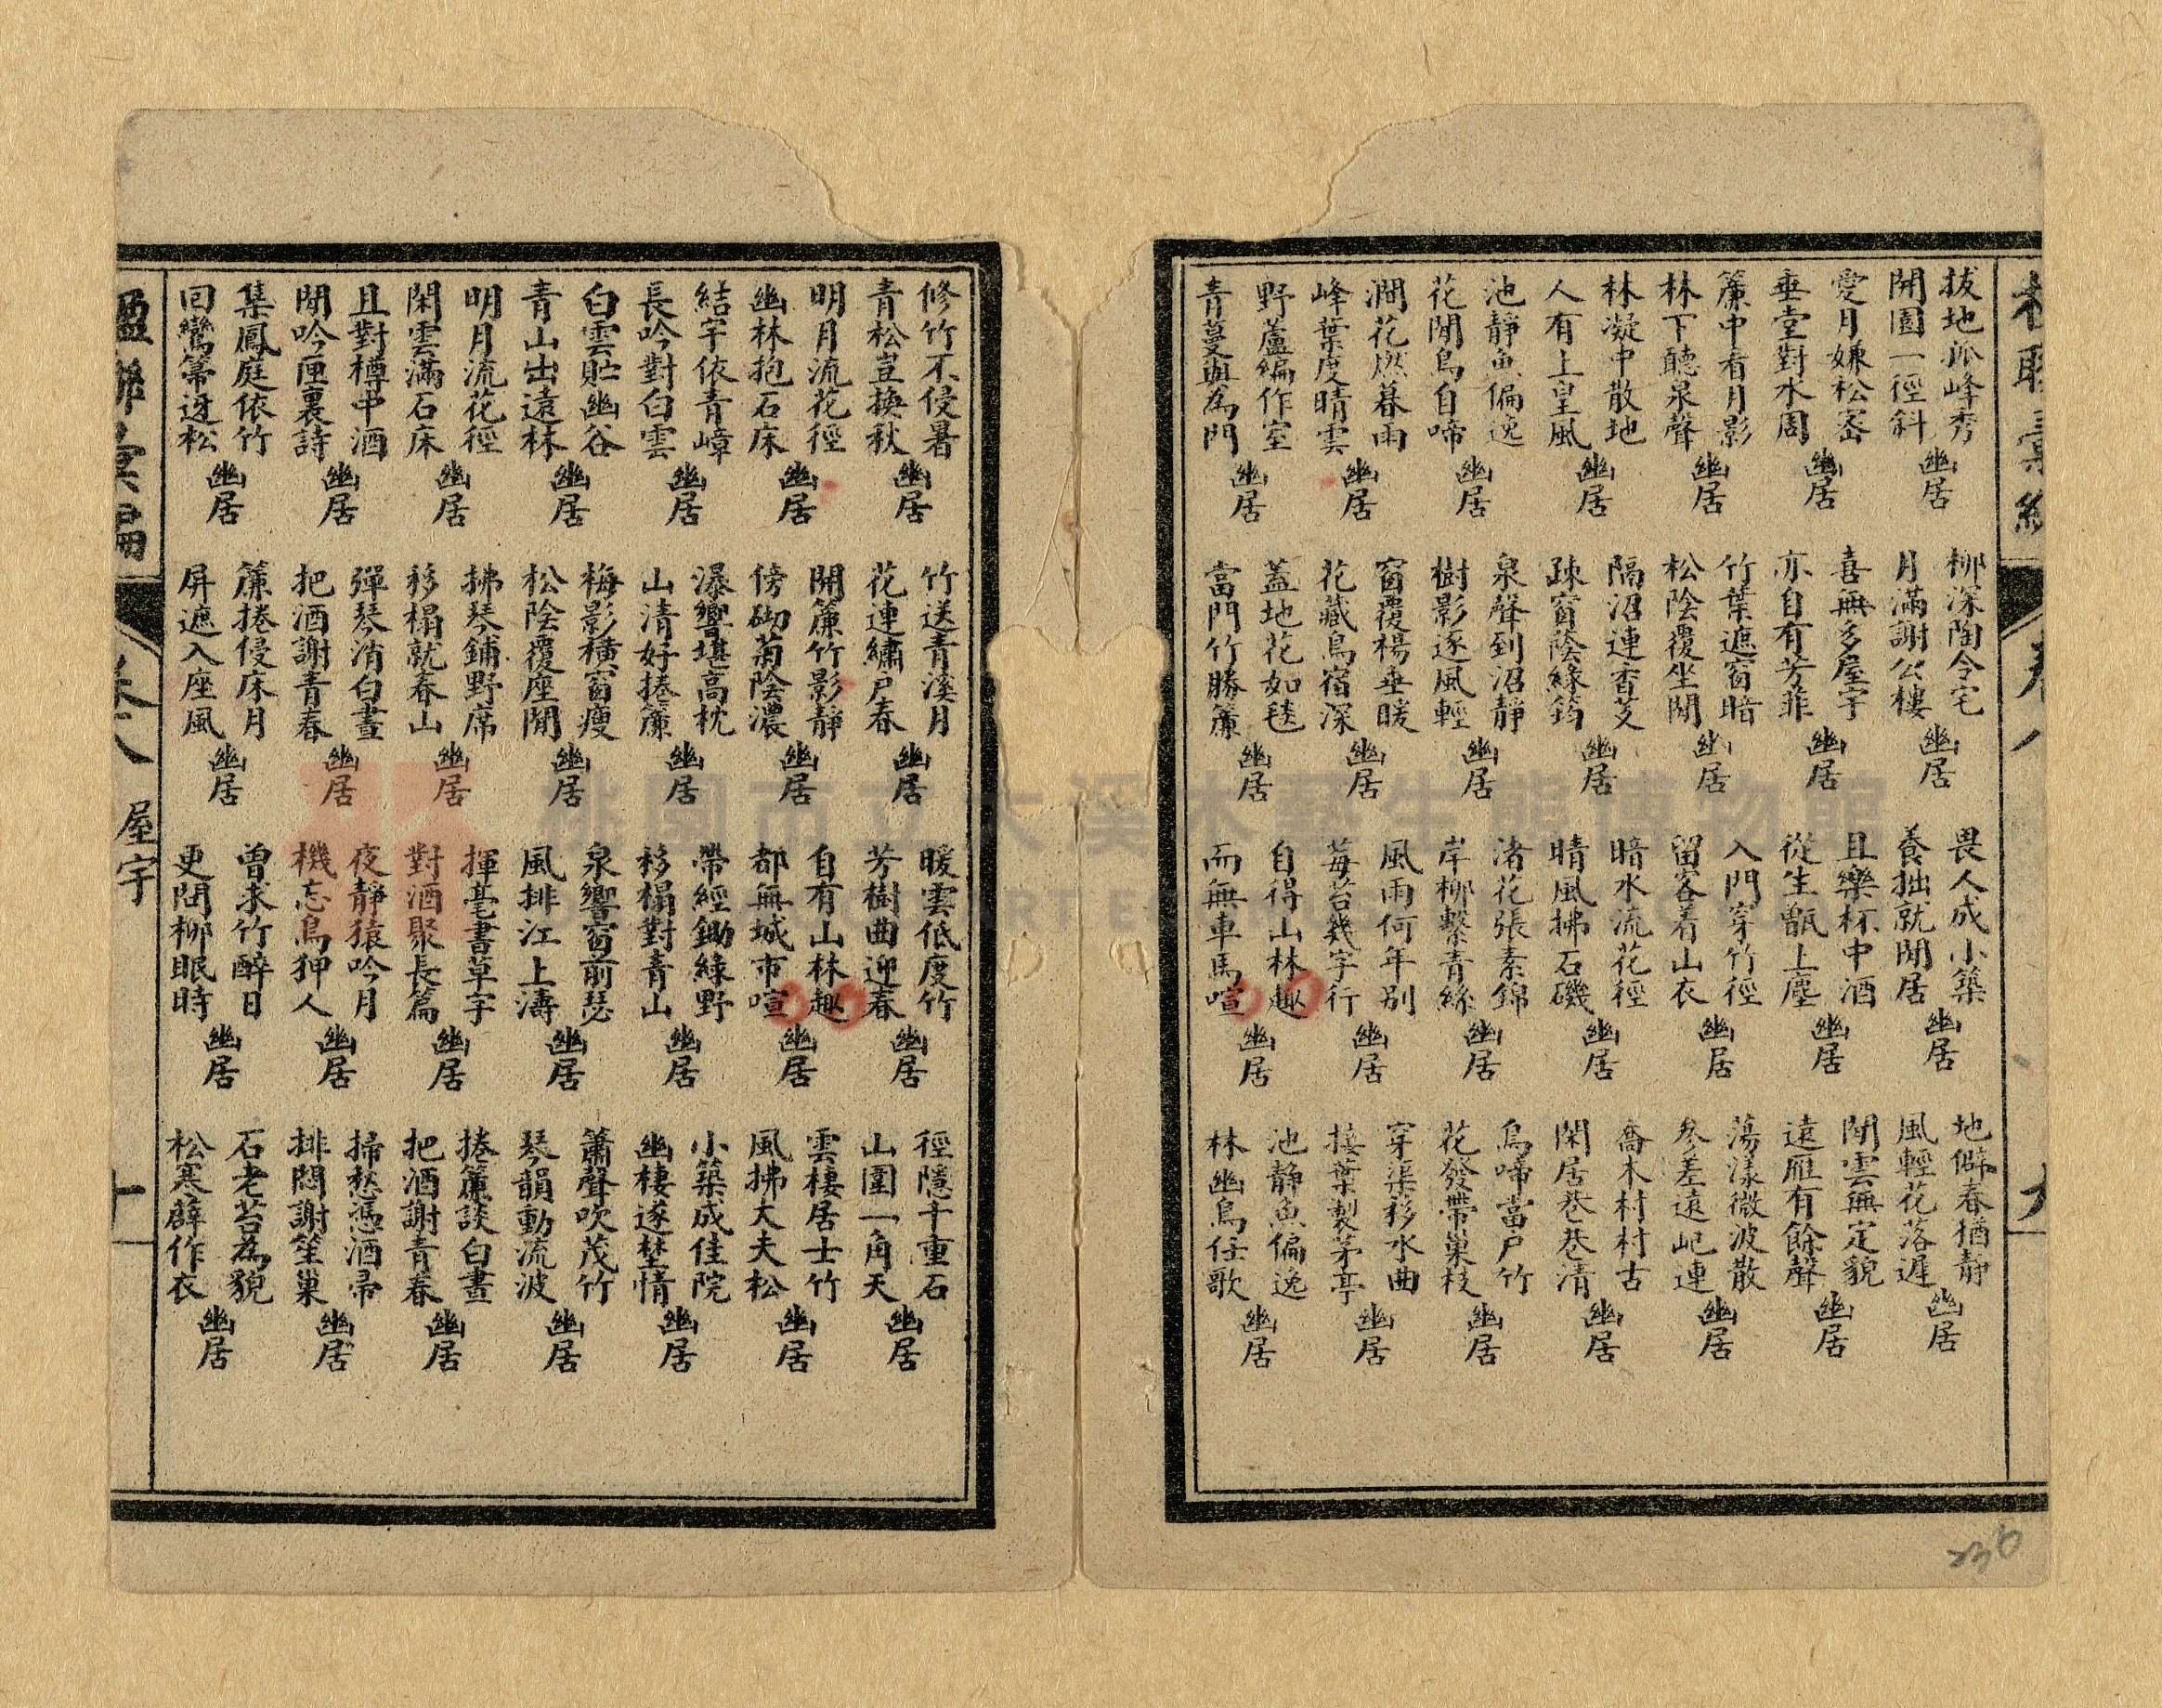 卷八
九
拔地孤峰秀
開園一徑斜
幽居
愛月嫌松密
垂堂對水周
幽居
簾中看月影
林下聽泉聲
幽居
林凝中散地
人有上皇風
幽居
池靜魚偏逸
花閒鳥自啼
幽居
澗花燃暮雨
峰葉度晴雲
幽居
野蘆編作室
青蔓與為門
幽居
柳深陶令宅
月滿謝公樓
幽居
喜無多屋宇
亦自有芳菲
幽居
竹葉遮窗暗
松陰覆坐閒
幽居
隔沼連香芰
疎窗蔭綠筠
幽居
泉聲到沼靜
樹影逐風輕
幽居
窗覆楊垂暖
花藏鳥宿深
幽居
蓋地花如毯
當門竹勝簾
幽居
畏人成小築
養拙就閒居
幽居
且樂杯中酒
從生甑上塵
幽居
入門穿竹徑
留客着山衣
幽居
暗水流花徑
晴風拂石磯
幽居
渚花張素錦
岸柳繫青絲
幽居
風雨何年別
莓苔幾字行
幽居
自得山林趣
而無車馬喧
幽居
地僻春猶靜
風輕花落遲
幽居
閒雲無定貌
遠雁有餘聲
幽居
蕩漾微波散
參差遠屺連
幽居
喬木村村古
閑居巷巷清
幽居
鳥啼當戶竹
花發帶巢枝
幽居
穿渠移水曲
接葉製茅亭
幽居
池靜魚偏逸
林幽鳥任歌
幽居
修竹不侵暑
青松豈換秋
幽居
明月流花徑
幽林抱石床
幽居
結宇依青嶂
長吟對白雲
幽居
白雲貯幽谷
青山出遠林
幽居
明月流花徑
閑雲滿石床
幽居
且對樽中酒
閒吟匣裏詩
幽居
集鳳庭依竹
回鸞𥱼迓松
幽居
竹送青溪月
花連繡戶春
幽居
開簾竹影靜
傍砌菊陰濃
幽居
瀑響堪高枕
山清好捲簾
幽居
梅影橫窗瘦
松陰覆座閒
幽居
拂琴鋪野席
移榻就春山
幽居
彈琴消白晝
把酒謝青春
幽居
簾捲侵床月
屏遮入座風
幽居
暖雲低度竹
芳樹曲迎春
幽居
自有山林趣
都無城市喧
幽居
帶經鋤綠野
移榻對青山
幽居
泉響窗前瑟
風排江上濤
幽居
揮毫書草字
對酒聚長篇
幽居
夜靜猿吟月
機忘鳥狎人
幽居
曾求竹醉日
更問柳眠時
幽居
徑隱千重石
山圍一角天
幽居
雲棲居士竹
風拂大夫松
幽居
小築成佳院
幽棲遂埜情
幽居
簫聲吹茂竹
琴韻動流波
幽居
捲簾談白晝
把酒謝青春
幽居
掃愁憑酒帚
排悶謝笙巢
幽居
石老苔為貌
松寒薜作衣
幽居
楹聯彙編
卷八
屋宇
十
236
桃園市立大溪木藝生態博物館